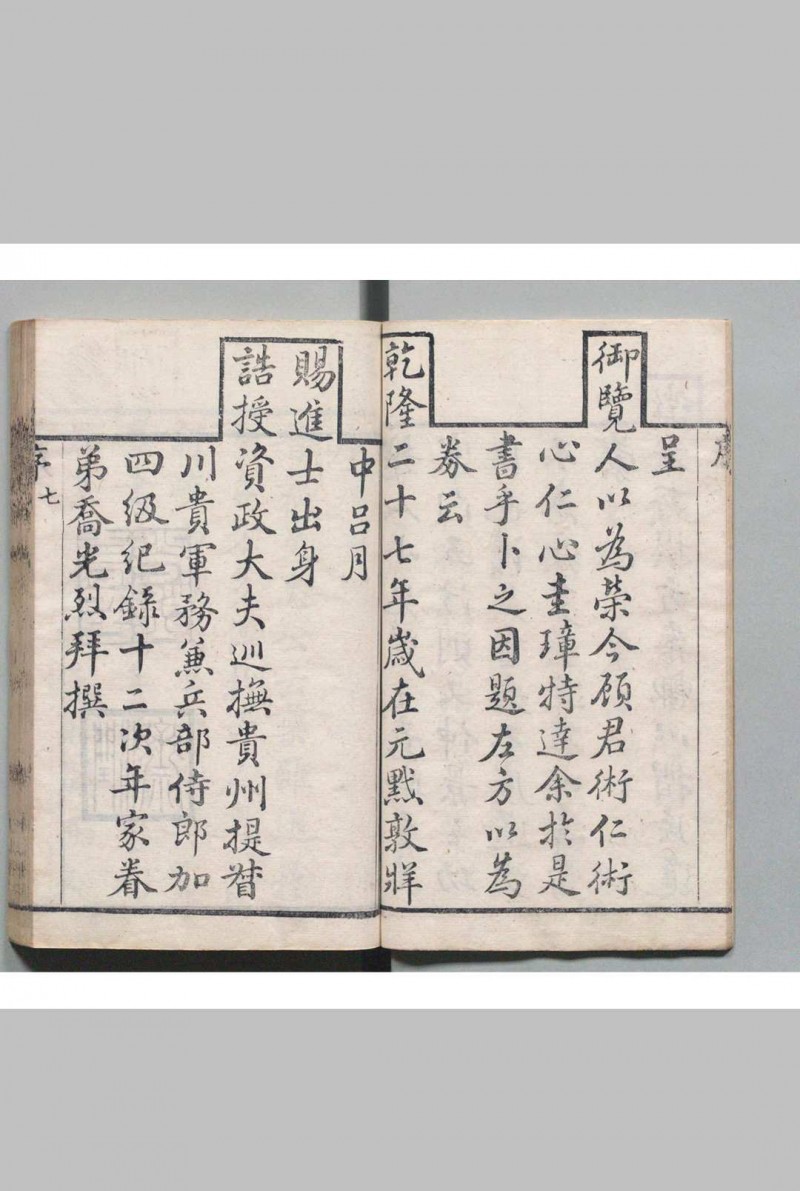 呈
御覽人以為榮今顧君術仁術
心仁心圭璋特達余於是
書乎卜之因題左方以為
券云
乾隆二十七年歲在元黓敦牂
中吕月
賜進士出身
誥授資政大夫巡撫貴州提督
川貴軍務兼兵部侍郎加
四級紀錄十二次年家眷
弟喬光烈拜撰
序 七